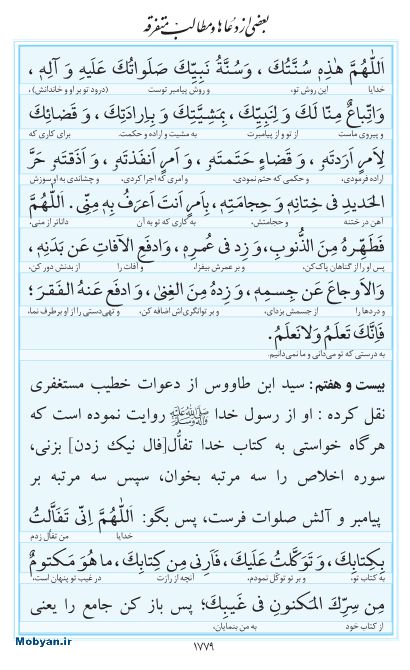 بعضی از دعاها و مطالب متفرقه
اَللّٰهُمَّ هٰذِهِ سُنَّتُكَ ، وَسُنَّةُ نَبِيِّكَ صَلَواتُكَ عَلَيهِ وَ آلِهِ ،
خدایا این روش تو، و روش پیامبر توست (درود تو بر او و خاندانش)،
وَاتِّباعٌ مِنّا لَكَ وَ لِنَبِيِّكَ، بِمَشِيَّتِكَ وَ بِاِرادَتِكَ ، وَ قَضائِكَ
و پیروی ماست از تو و از پیامبرت به مشیت و اراده و حکمت. برای کاری که
لِاَمرٍ اَرَدتَهُ ، وَ قَضاءٍ حَتَمتَهُ ، وَ اَمرٍ اَنفَذتَهُ ، وَ اَذَقتَهُ حَرَّ
اراده فرمودی، و حکمی که حتم نمودی، و امری که اجرا کردی، و چشاندی به او سوزش
الحَديدِ فى خِتانِهِ وَ حِجامَتِهِ ، بِاَمرٍ اَنتَ اَعرَفُ بِهِ مِنّى . اَللّٰهُمَّ
آهن در ختنه و حجامتش، به کاری که تو به آن داناتر از منی.
فَطَهِّرهُ مِنَ الذُّنوبِ، وَ زِد فى عُمرِهِ، وَادفَعِ الآفاتِ عَن بَدَنِهِ،
پس او را از گناهان پاک کن، و بر عمرش بیفزا، و آفات را از بدنش دور کن،
وَالاَوجاعَ عَن جِسمِهِ، وَ زِدهُ مِنَ الغِنىٰ، وَ ادفَع عَنهُ الفَقرَ ؛
و دردها را از جسمش بزدای، و بر توانگری اش اضافه کن، و تهی‌دستی را از او برطرف نما،
فَاِنَّكَ تَعلَمُ وَلانَعلَمُ.
به درستی که تو می‌دانی و ما نمی‌دانیم.
بیست و هفتم: سید ابن طاووس از دعوات خطیب مستغفری
نقل کرده : او از رسول خدا ﷺ روایت نموده است که
هرگاه خواستی به کتاب خدا تفأّل[فال نیک زدن] بزنی،
سوره اخلاص را سه مرتبه بخوان، سپس سه مرتبه بر
پیامبر و آلش صلوات فرست، پس بگو: اَللّٰهُمَّ اِنّى تَفَاَّلتُ
خدایا من تفأل زدم
بِكِتابِكَ، وَ تَوَكَّلتُ عَلَيكَ، فَاَرِنى مِن كِتابِكَ، ما هُوَ مَكتومٌ
به کتاب تو، و بر تو توکل نمودم، آنچه از رازت در غیب تو پنهان است،
مِن سِرِّكَ المَكنونِ فى غَيبِكَ؛ پس باز کن جامع را یعنی
از کتاب خود به من بنمایان،
۱۷۷۹
Mobyan.ir